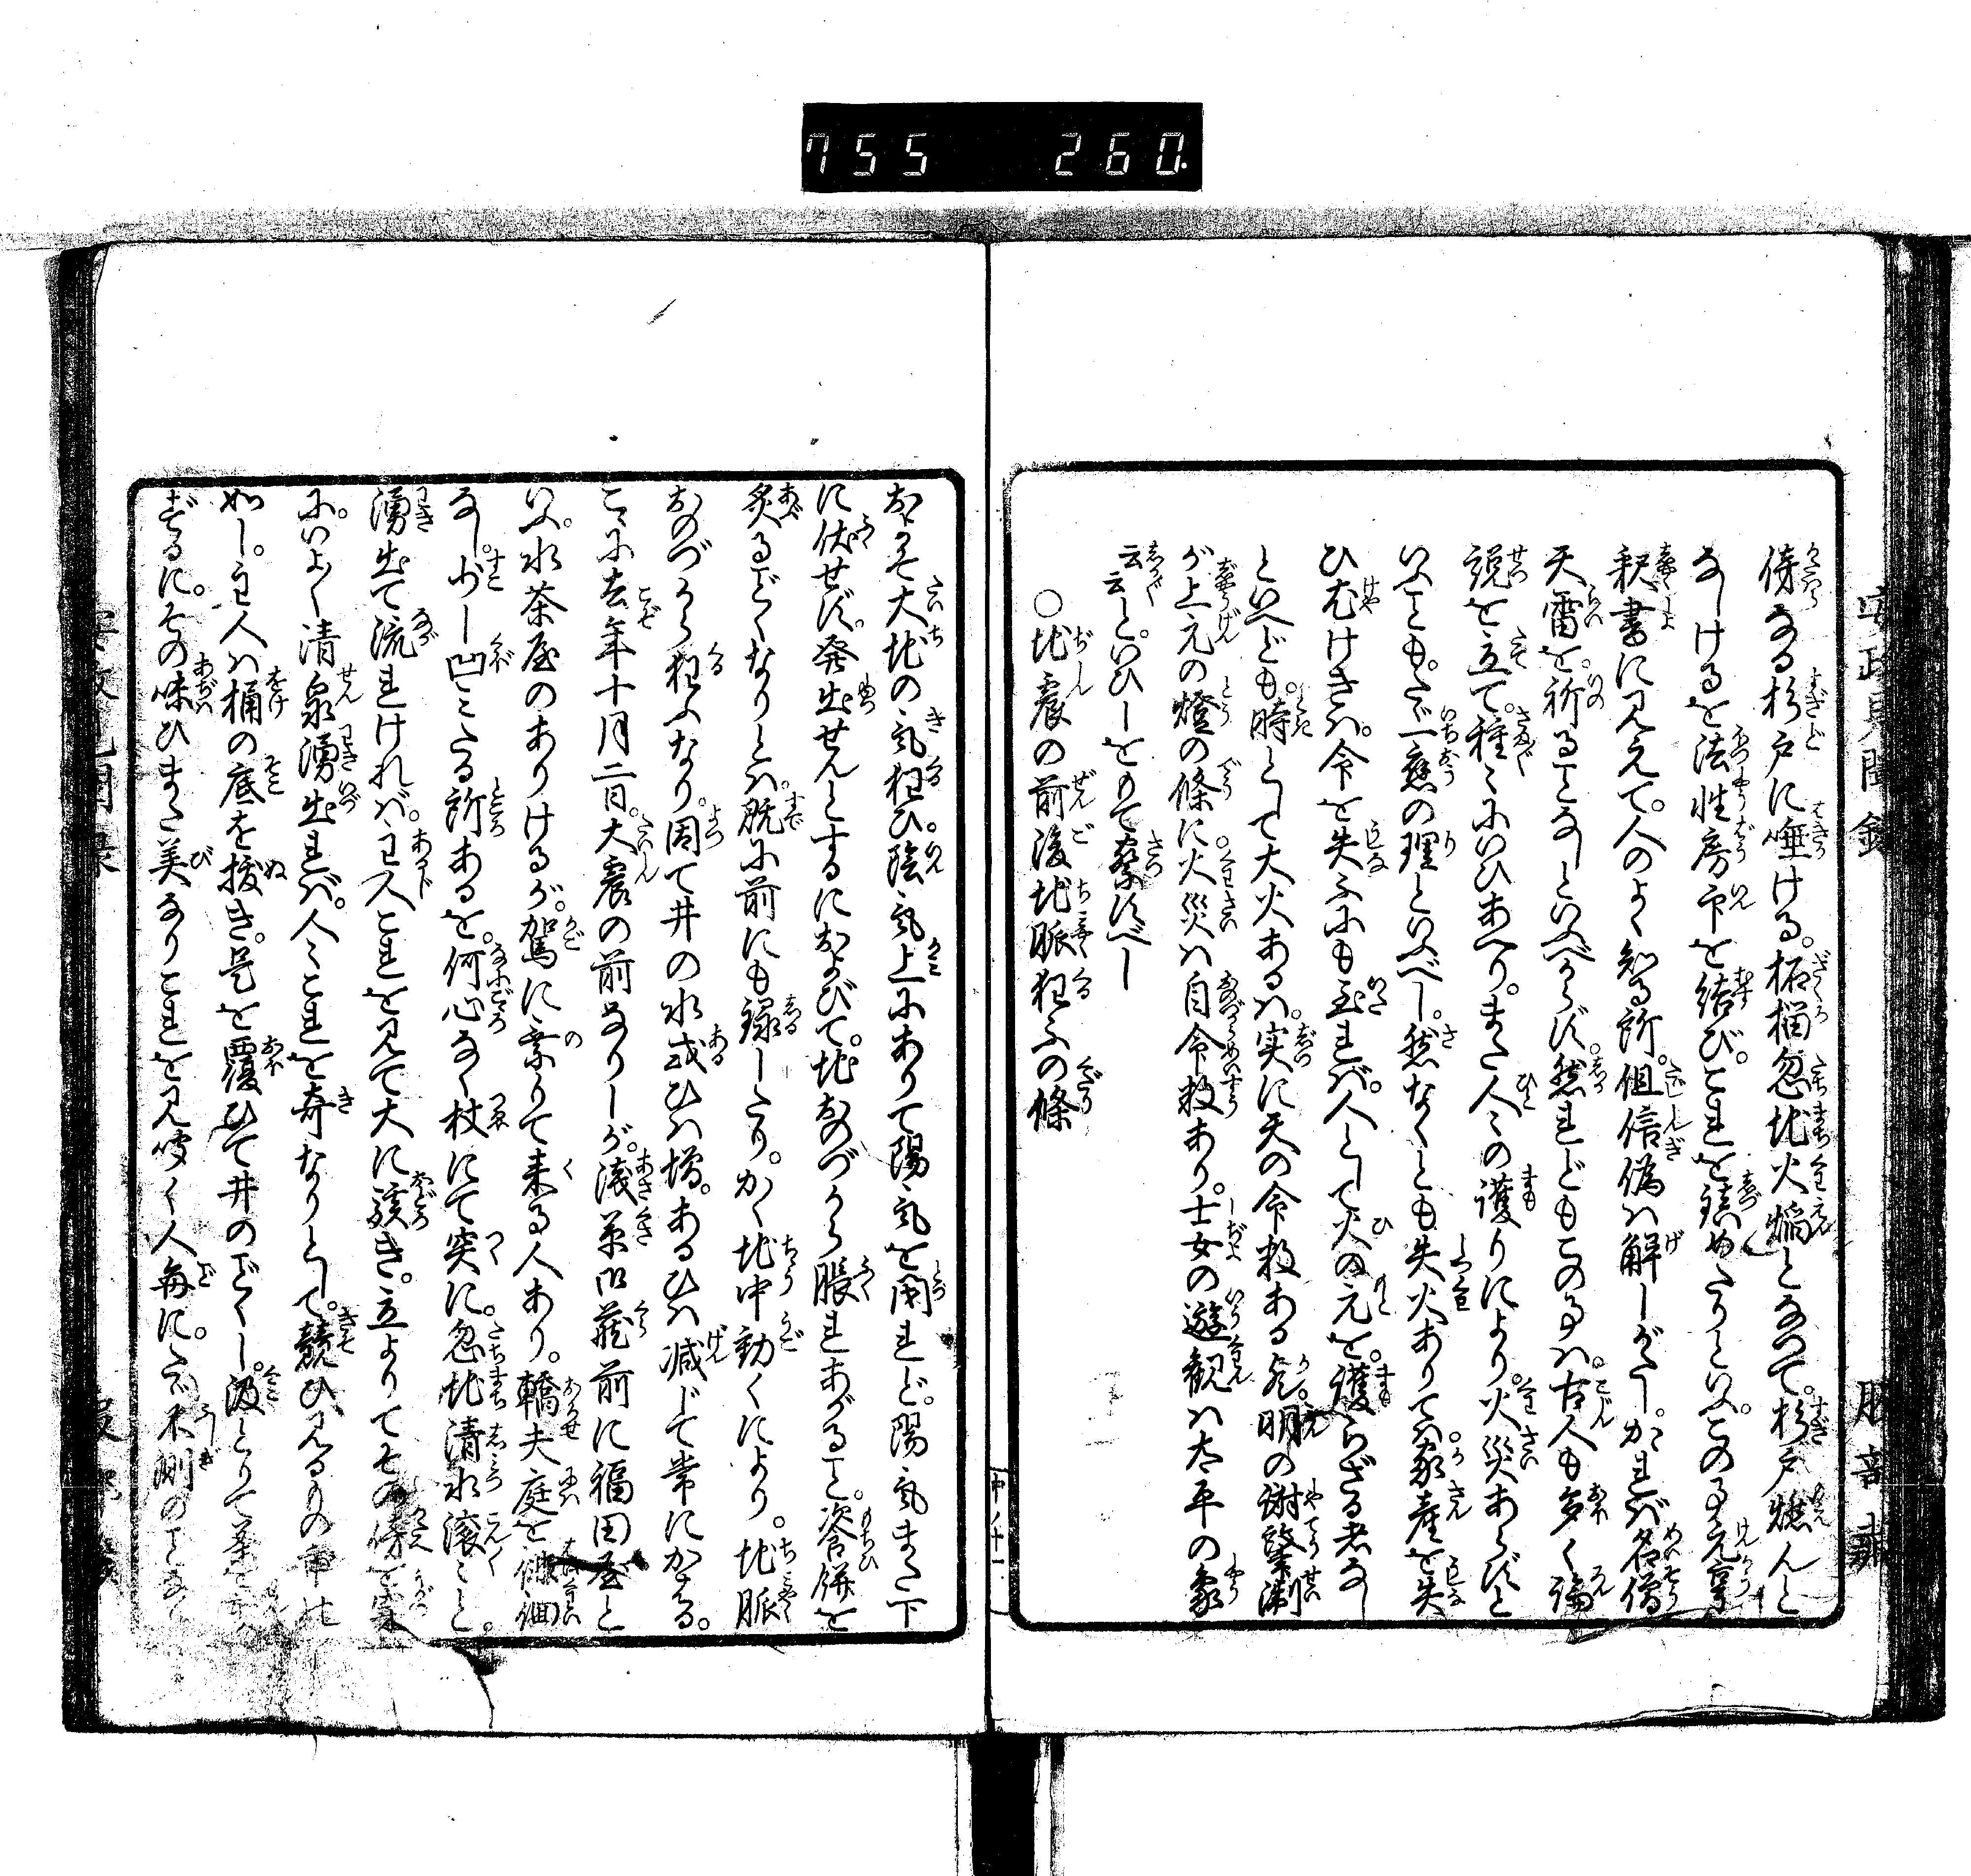 755 260.
安政見聞録
服部蔵
傍なる杉戸に唾ける。柘榴忽地火焔となつて。杉戸燃んと
なしけるを法性房印を結び。これを鎮めたりといふ。この事元享
釈書に見えて。人のよく知る所。但信偽ハ解しがたし。かゝれバ名僧
天雷を。祈ることなしといふべからず。然れどもこの事ハ。古人も多く論
説を立て。種〻にいひあへり。また人〻の護りにより。火災あらずと
いふことも。たゞ一應の理といふべし。然なくとも失火ありてハ。家産を失
ひむけきハ。命を失ふにも至れバ。人として火の元を。護らざる者なし
といへども。時として大火あるハ。実に天の命数ある歟。明の謝肇淛
が上元の燈の條に。火災ハ自命数あり。士女の遊観ハ太平の象
云云と。いひしをもて察すべし
○地震の前後地脈狂ふの條
中ノ十一
おほそ大地の気狂ひ。陰気上にありて陽気を閉れど。陽気また下
に伏せず。発出せんとするにおよびて。地おのづから脹れあがること。餈餅を
炙るごとくなりとハ。既に前にも録したり。かく地中動くにより。地脈
おのづから狂ふなり。因て井の水或ひハ増。あるひハ減じて常にかはる。
こゝに去年十月二日。大震の前なりしが。浅草御蔵前に福田屋と
いふ。水茶屋のありけるが。駕に乗りて来る人あり。轎夫庭を徘徊
なし。少し凹みたる所あるを。何心なく杖にて突に。忽地清水滾〻と。
湧出て流れけれバ。主人これを見て大に駭き。立よりてその傍を穿
に。いよ〳〵清泉湧出れバ。人〻これを奇なりとして。競ひ見るもの市の
如し。主人ハ桶の底を抜き。是を覆ひて井のごとくし。汲とりて茶を
ずるに。その味ひまた美なりこれを見聞く人毎に。たゞ不測の
安政見聞録
服部蔵